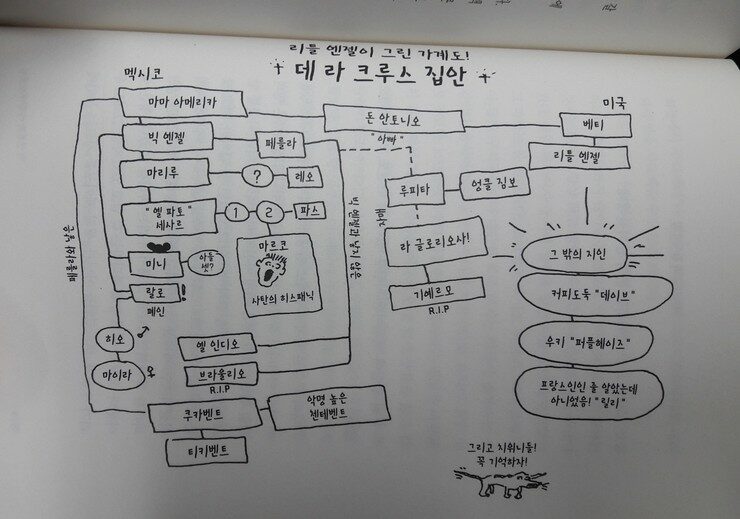 리틀 엔젤이 그린 가계도!
데 라 크루스 집안
멕시코
미국
마마 아메리카
돈 안토니오
베티
빅 엔젤
페를라
"아빠"
리틀 엔젤
마리루
?
레오
루피타
엉클 짐보
"엘 파토"
세사르
1
2
파스
마르코
사탄의 히스패닉
라 글로리오사!
그 밖의 지인
미니
아들
셋?
기예르모
R.I.P
커피도둑 "데이브"
랄로
!
페인
히오
마이라
엘 인디오
브라울리오
R.I.P
우키 "퍼플헤이즈"
프랑스인인 줄 알았는데
아니었음! "릴리"
쿠카벤트
악명 높은
첸테벤트
티키벤트
그리고 치위니들!
꼭 기억하자!